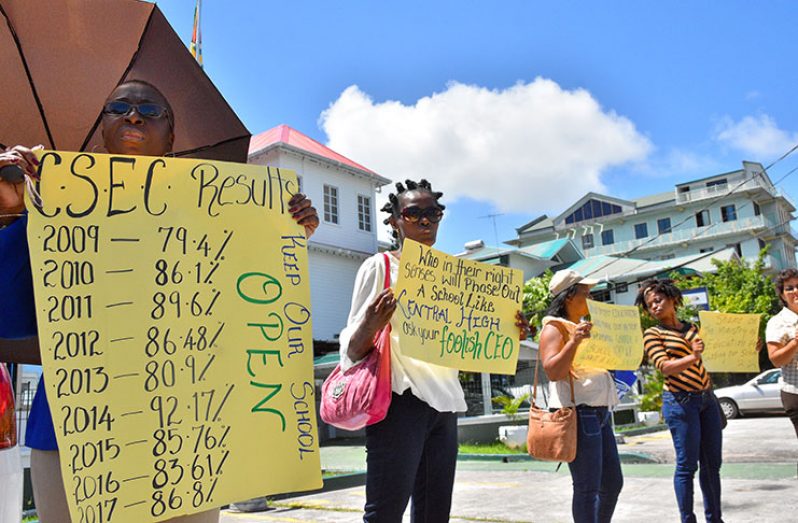 C.S.E.C Results
2009 — 79.4%
2010 — 86.1%
2011 — 89.6%
2012 — 86.48%
2013 — 80.9%
2014 — 92.17%
2015 — 85.76%
2016 — 83.61%
2017 — 86.8%
KEEP OUR SCHOOL
OPEN
Who in their right
senses will Phase Out
A School Like
Central High
ask your foolish CEO